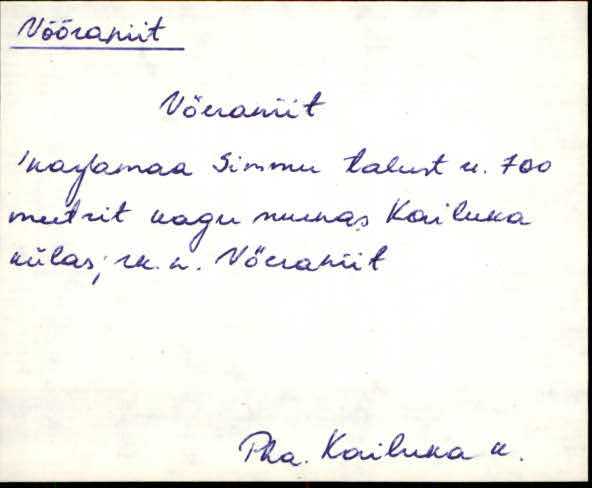 Võõraniit
Võeraniit
'karjamaa Simmu talust u. 700
meetrit kagu suunas Kailuka
külas; rk. n. Võeraniit
Pha. Kailuka k.